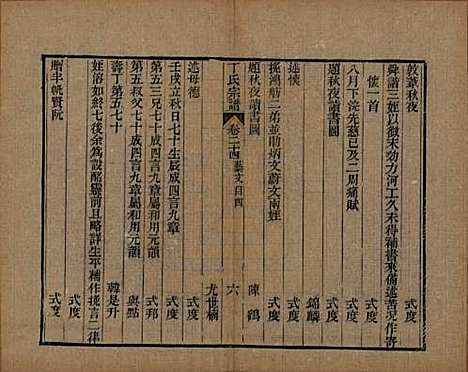 敦葦秋夜
舜諧三姪以徵末効力河工久未得補書來備述苦況作寄
懷一首 式度
八月下浣先慈已及二周痛賦 式度
題秋夜讀書圖 錦麟
述懷 式度
挽鴻舫二弟並助炳文蔚文兩姪 式度
題秋夜讀書圖 陳鶴
丁氏宗譜 卷二十四 藝文目四 六
述母德 尤世楠
壬戌立秋日七十生辰成四言九章 式度
第五三兄七十成四言九章屬和用元韻 式邦
第五叔父七十成四言九章屬和用元韻 與點
壽丁第五七十 韓是升
姪俗如終七後余為設醮靈前且略詳生平補作挽言二律
式度
贈半帆賢阮 式度